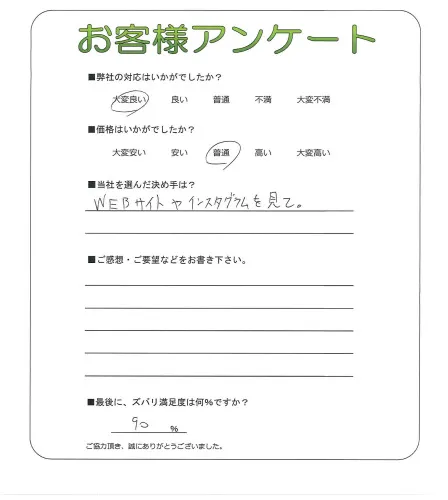 お客様アンケート
■弊社の対応はいかがでしたか？
大変良い 良い 普通 不満 大変不満
■価格はいかがでしたか？
大変安い 安い 普通 高い 大変高い
■当社を選んだ決め手は？
WEBサイトやインスタグラムを見て。
■ご感想・ご要望などをお書き下さい。
■最後に、ズバリ満足度は何％ですか？
90 ％
ご協力頂き、誠にありがとうございました。